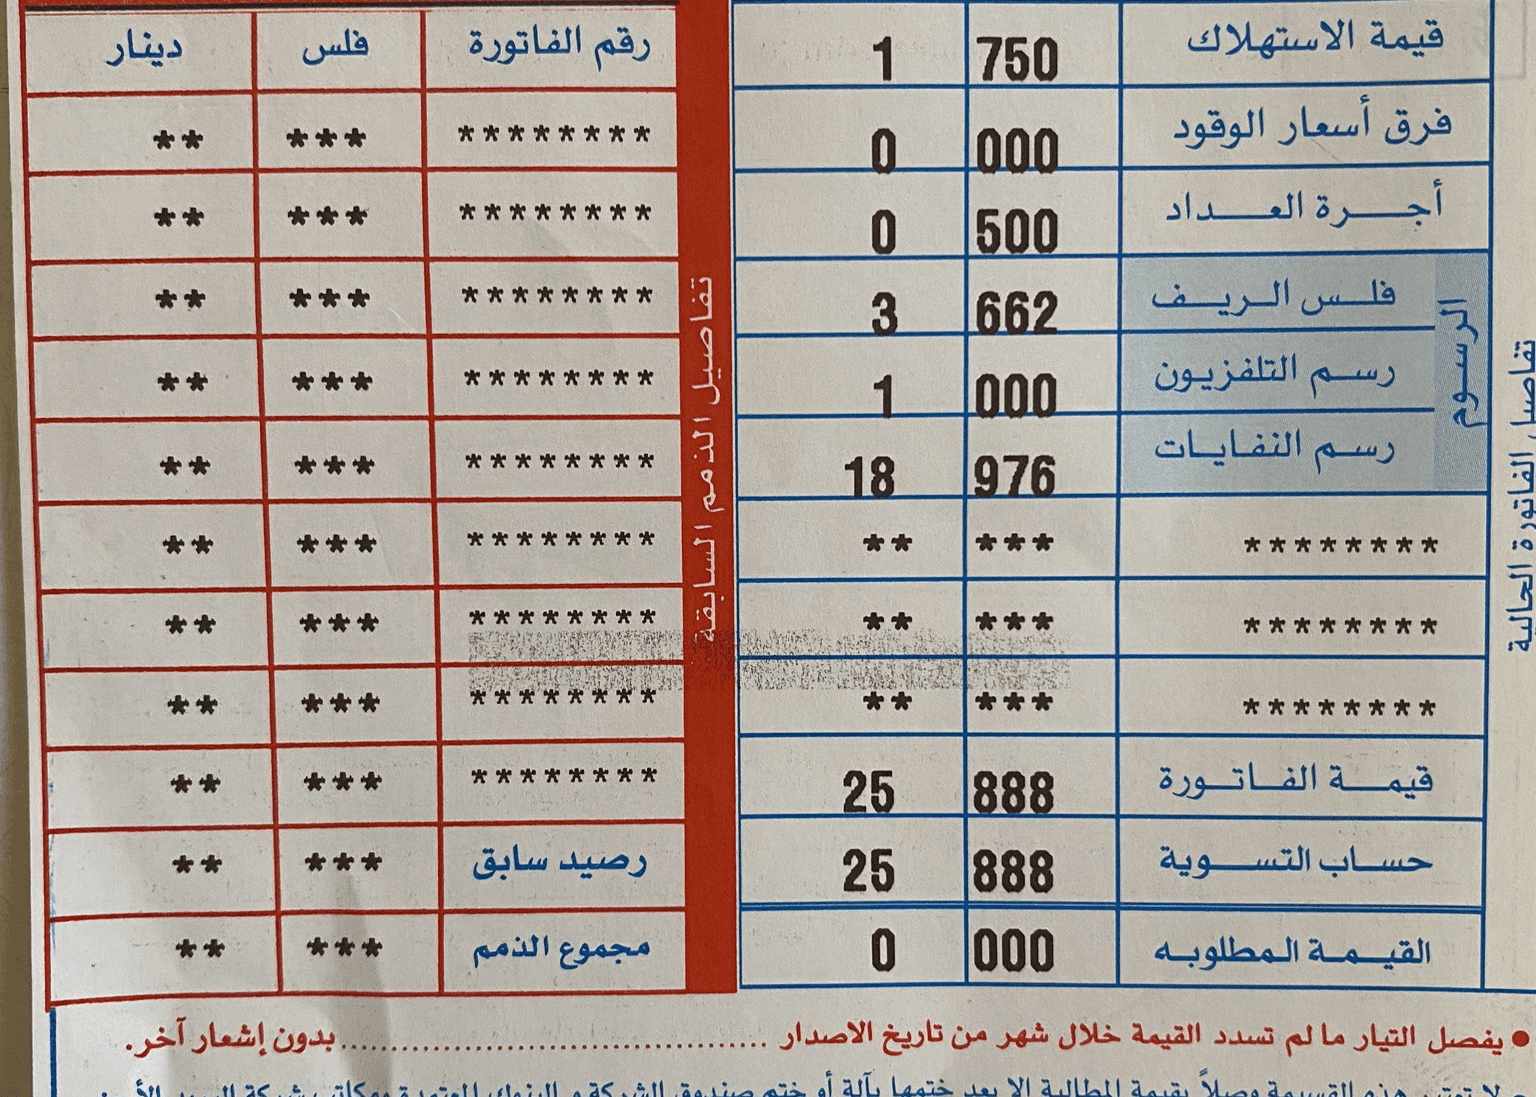 تفاصيل الفاتورة الحالية
قيمة الاستهلاك 750 1
فرق أسعار الوقود 000 0
أجرة العداد 500 0
الرسوم
فلس الريف 662 3
رسم التلفزيون 000 1
رسم النفايات 976 18
******** *** **
******** *** **
******** *** **
قيمة الفاتورة 888 25
حساب التسوية 888 25
القيمة المطلوبه 000 0
تفاصيل الذمم السابقة
رقم الفاتورة فلس دينار
******** *** **
******** *** **
******** *** **
******** *** **
******** *** **
******** *** **
******** *** **
******** *** **
******** *** **
رصيد سابق *** **
مجموع الذمم *** **
● يفصل التيار ما لم تسدد القيمة خلال شهر من تاريخ الاصدار ........................................ بدون إشعار آخر.
لا تعتبر هذه القسيمة وصلاً بقيمة المطالبة الا بعد ختمها بآلة أو ختم صندوق الشركة و البنوك المعتمدة ومكاتب شركة البريد